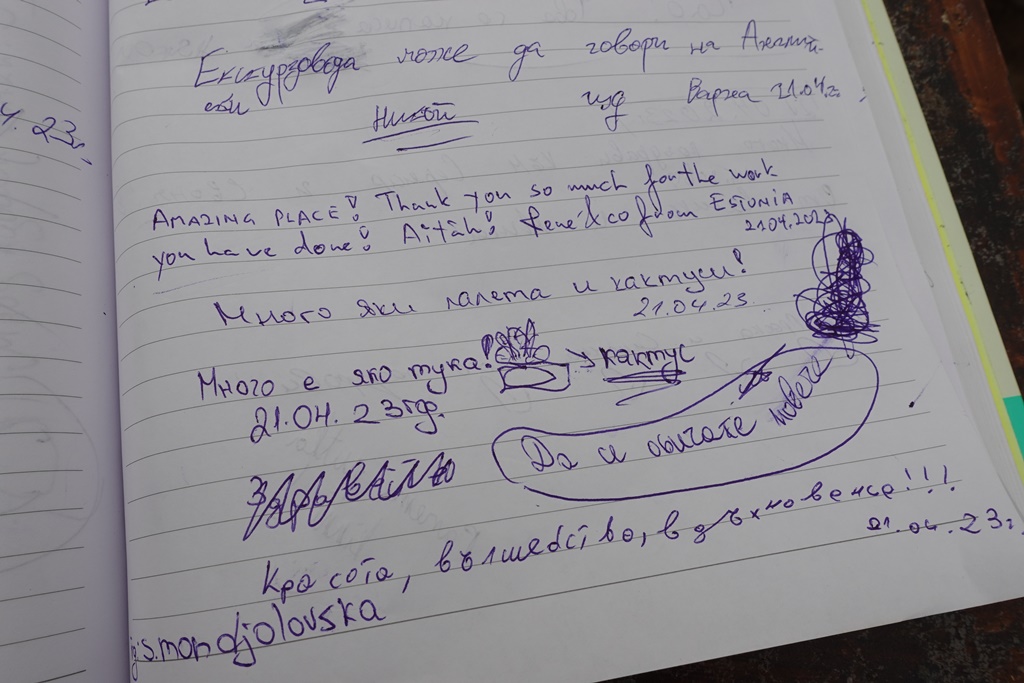 Екскурзовода може да говори на Английски
Никой изд Варна 21.04г.
4.23г.
AMAZING PLACE! Thank you so much for the work
you have done! Aitäh! René & co from ESTONIA
21.04.2023
Много яки лалета и кактуси!
21.04.23
Много е яко тука! → кактус
21.04.23гд.
Да се обичате повече
Красота, вълшебство, вдъхновение!!!
21.04.23г.
s.mondjolovska